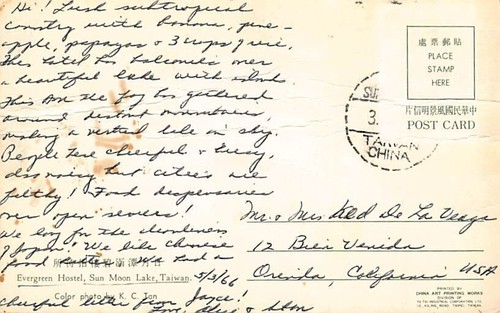 Hi! Lush subtropical
country with banana, pine-
apple, papayas & 3 crops of rice.
This hotel has balconies over
a beautiful lake with islands.
This AM the fog has gathered
around distant mountains,
making a vertical lake in sky.
People here cheerful & busy,
also noisy but cities are
filthy! Food dispensaries
over open sewers!
We long for the cleanliness
of Japan! We like Chinese
food We had a
cheerful letter from Joyce!
Love, &
Evergreen Hostel, Sun Moon Lake, Taiwan.
5/3/66
Color photo by K. C. Tan
處票郵貼
PLACE
STAMP
HERE
片信明景風國民華中
POST CARD
SU
3.
TAIWAN
CHINA
Mr. & Mrs. De La Veaga
12 Bien Venida
Orinda, California
USA
PRINTED BY
CHINA ART PRINTING WORKS
DIVISION OF